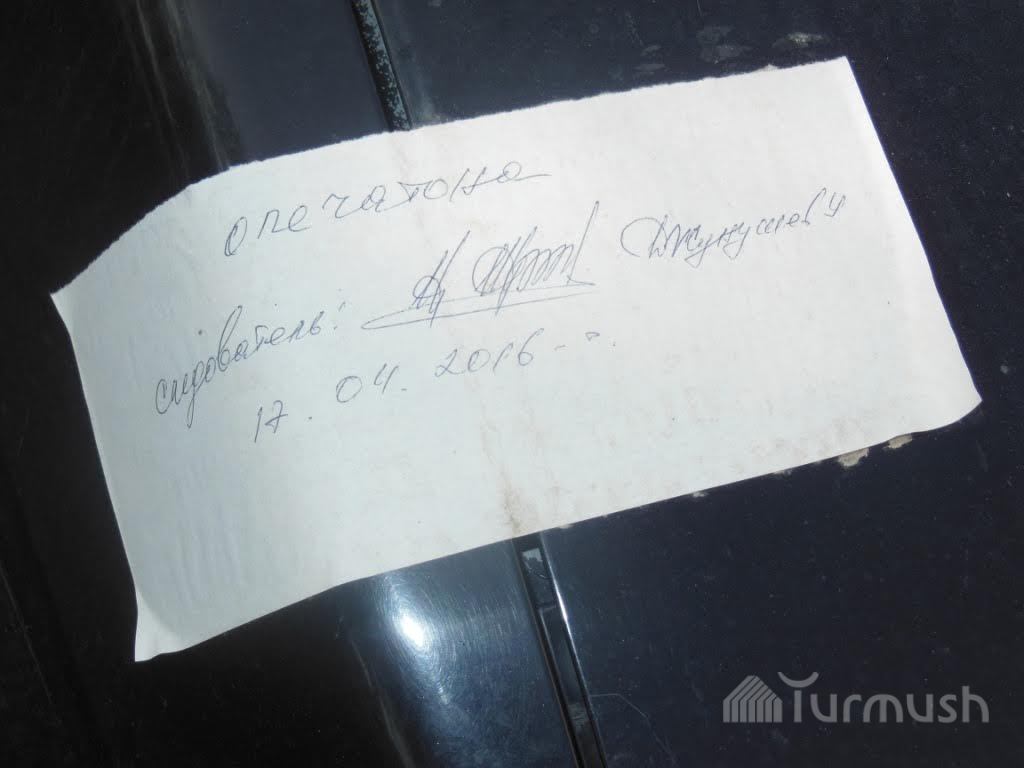 опечатона
следователь: Джунушев У
17.04.2016-г.
Turmush